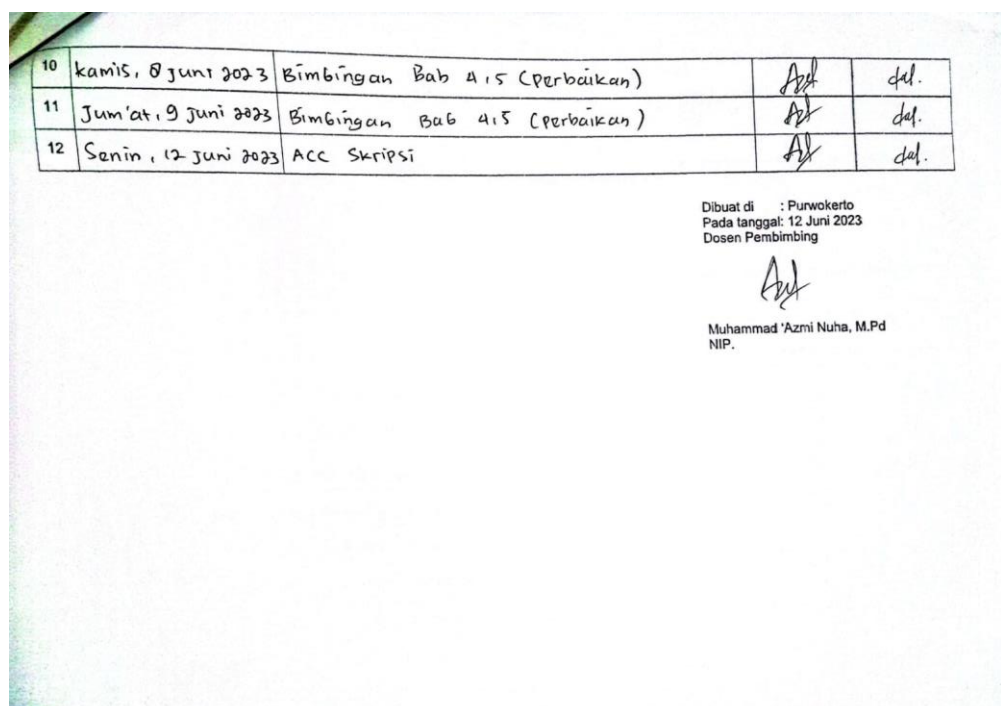 10 Kamis, 8 Juni 2023 Bimbingan Bab 4,5 (Perbaikan)
11 Jum'at, 9 Juni 2023 Bimbingan Bab 4,5 (Perbaikan)
12 Senin, 12 Juni 2023 ACC Skripsi
Dibuat di : Purwokerto
Pada tanggal: 12 Juni 2023
Dosen Pembimbing
Muhammad 'Azmi Nuha, M.Pd
NIP.